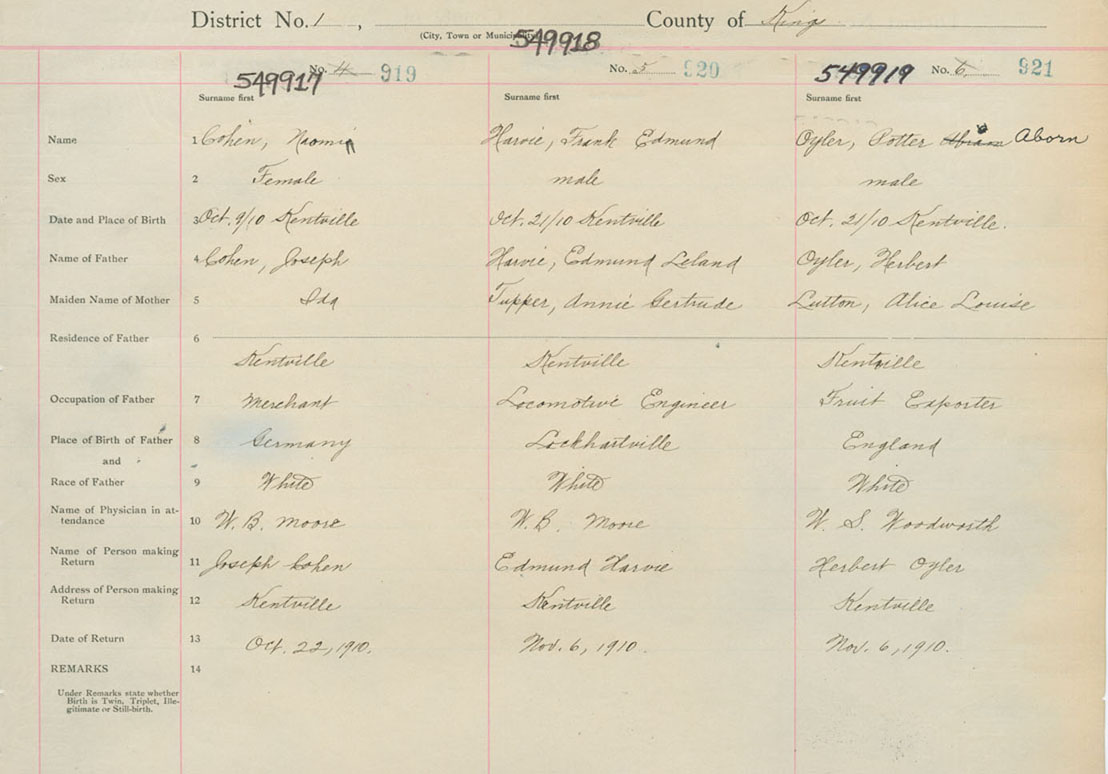 District No. 1 , County of King
(City, Town or Municipality)
549918
No. 4 919 No. 5 920 549919 No. 6 921
549917
Surname first Surname first Surname first
Name 1 Cohen, Naomi Harvie, Frank Edmund Oyler, Potter Abram Aborn
Sex 2 Female male male
Date and Place of Birth 3 Oct. 9/10 Kentville Oct. 21/10 Kentville Oct. 21/10 Kentville.
Name of Father 4 Cohen, Joseph Harvie, Edmund Leland Oyler, Herbert
Maiden Name of Mother 5 Ida Tupper, Annie Gertrude Lutton, Alice Louise
Residence of Father 6
Kentville Kentville Kentville
Occupation of Father 7 Merchant Locomotive Engineer Fruit Exporter
Place of Birth of Father 8 Germany Lockhartville England
and
Race of Father 9 White White White
Name of Physician in at-
tendance 10 W. B. Moore W. B. Moore W. S. Woodworth
Name of Person making
Return 11 Joseph Cohen Edmund Harvie Herbert Oyler
Address of Person making
Return 12 Kentville Kentville Kentville
Date of Return 13 Oct. 22, 1910. Nov. 6, 1910. Nov. 6, 1910.
REMARKS 14
Under Remarks state whether
Birth is Twin, Triplet, Ille-
gitimate or Still-birth.